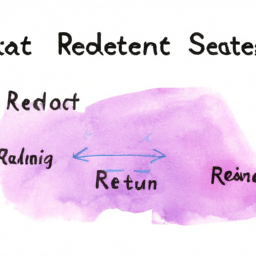 kat Redetent Seate
Redoct
Ralinig
Retun
Reine